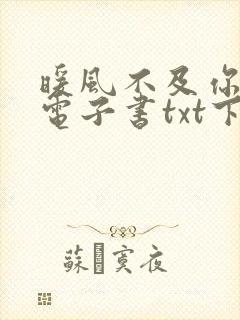 暖風不及你
電子書txt下
蘇 寞夜